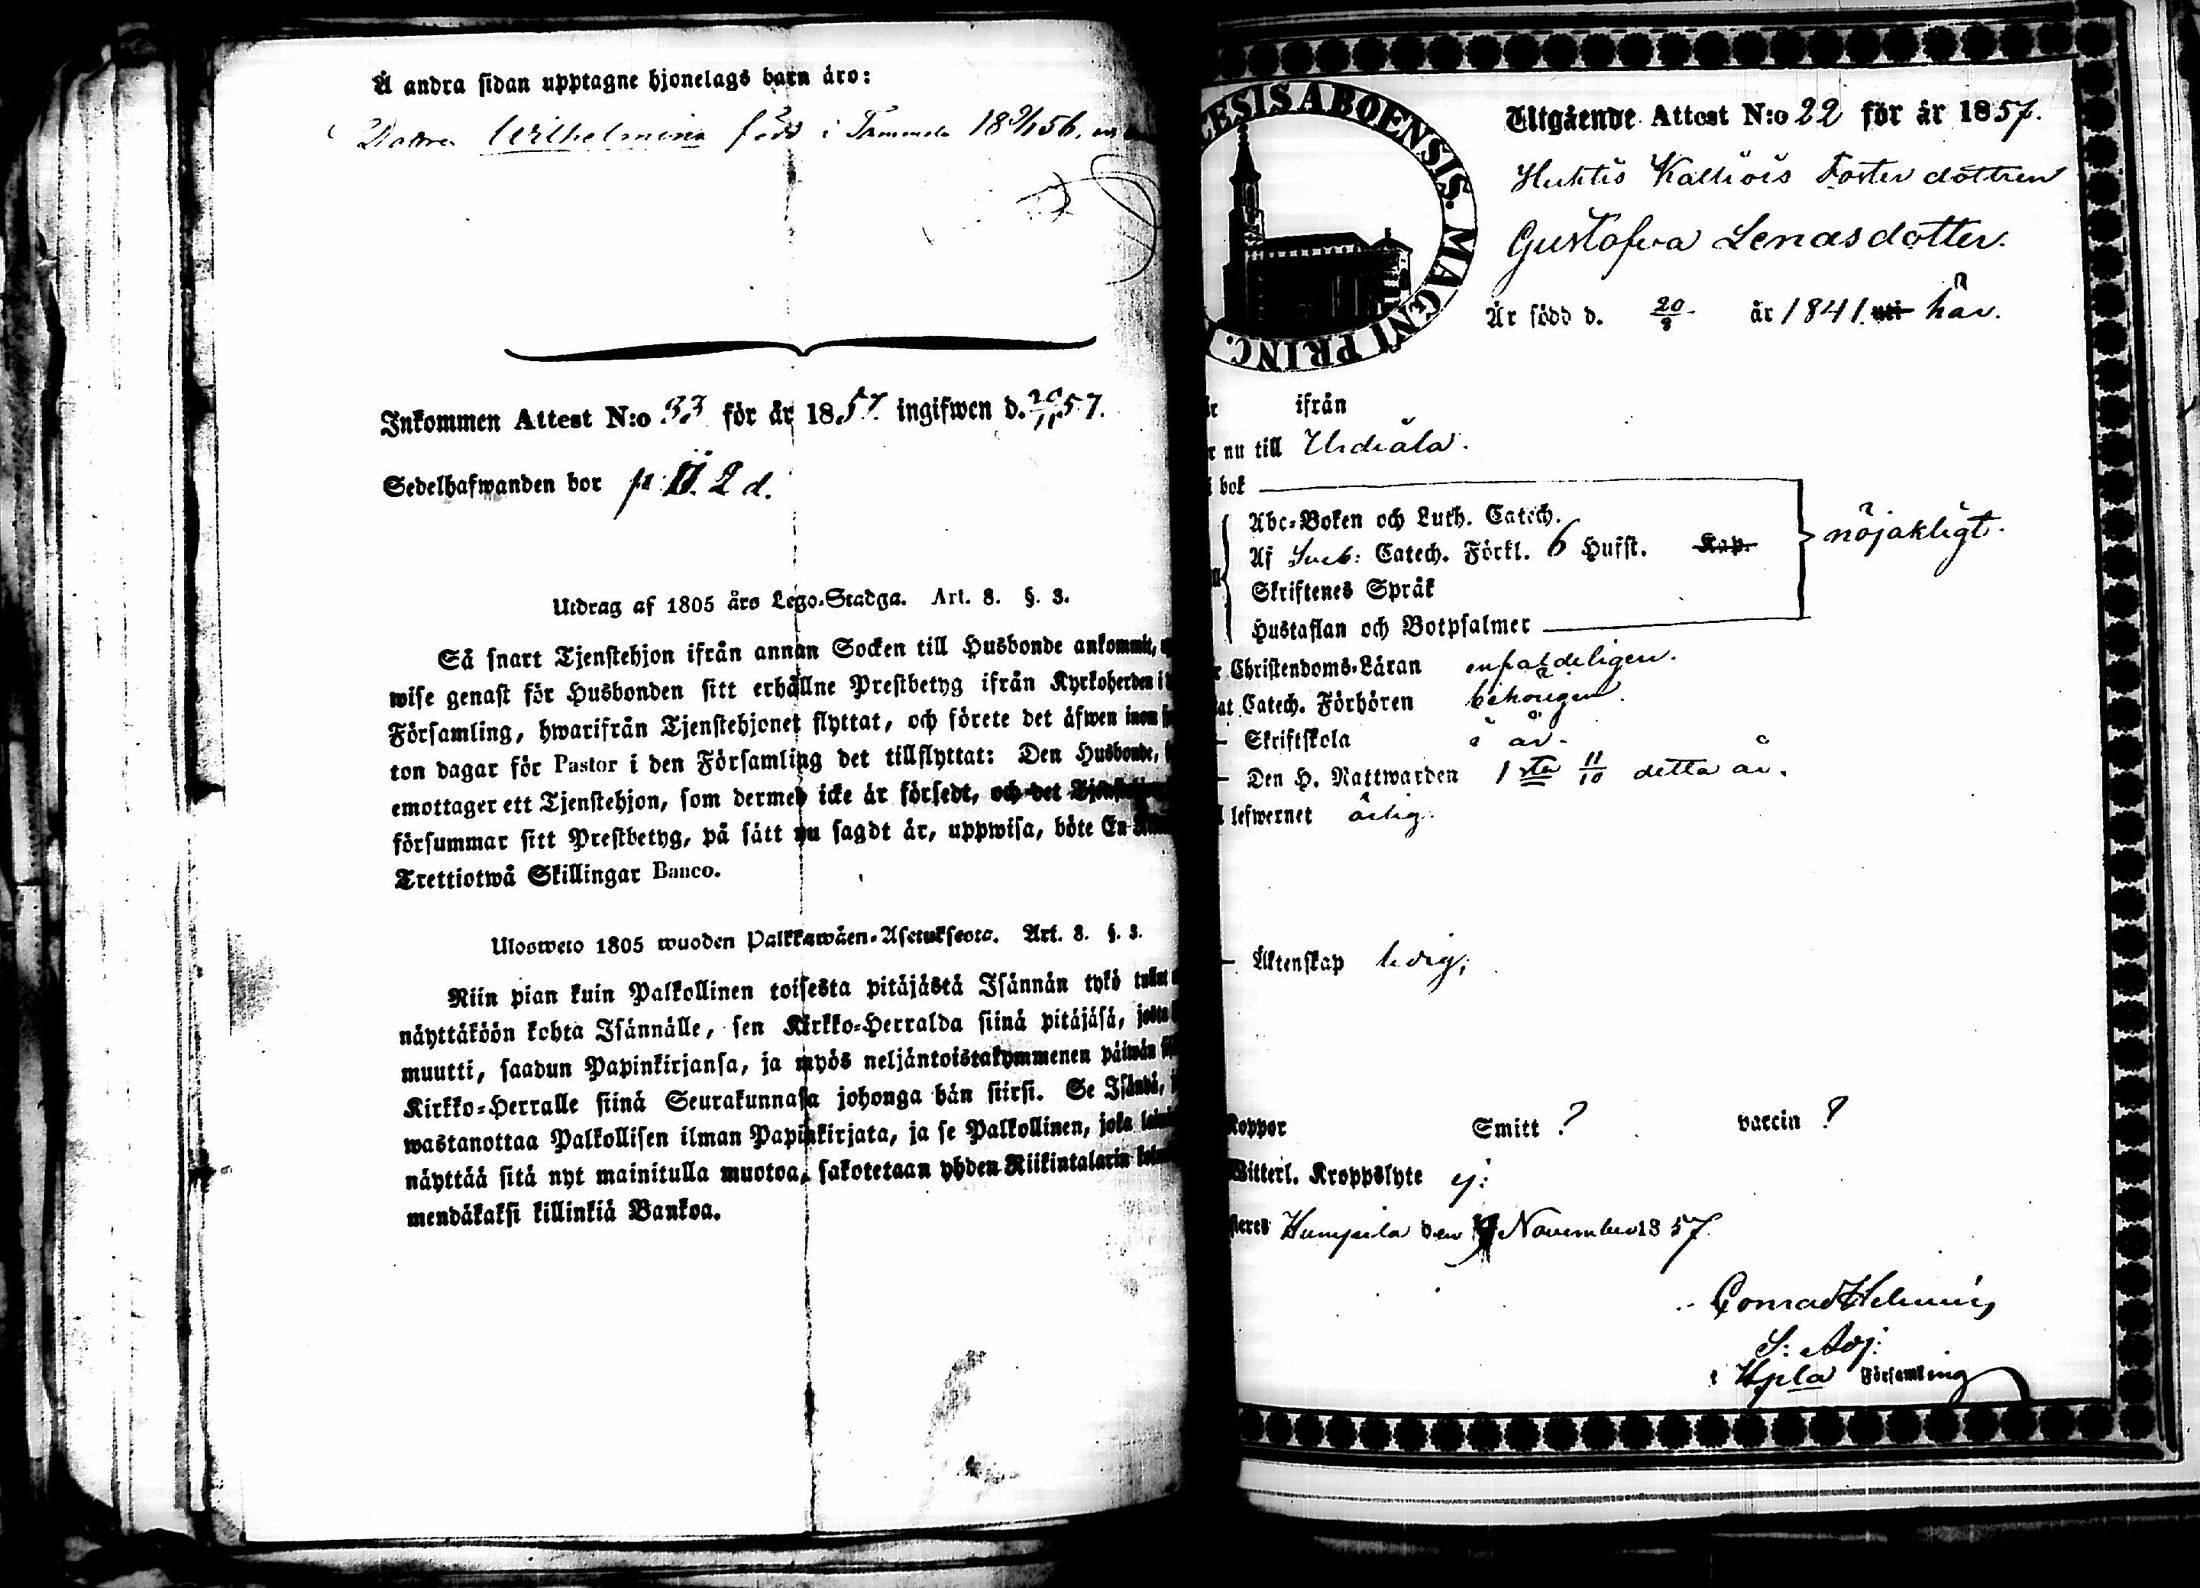 Å andra sidan upptagne hjonelags barn äro:
Dottren Wilhelmina född i Tammela 18 56.
Inkommen Attest N:o 33 för år 1857. ingifwen d. 20/11 57.
Sedelhafwanden bor p. II. 2 d.
Utdrag af 1805 års Lego-Stadga. Art. 8. §. 3.
Så snart Tjenstehjon ifrån annan Socken till Husbonde ankommit,
wise genast för Husbonden sitt erhållne Prestbetyg ifrån Kyrkoherden i
Församling, hwarifrån Tjenstehjonet flyttat, och förete det äfwen inom
ton dagar för Pastor i den Församling det tillflyttat: Den Husbonde,
emottager ett Tjenstehjon, som dermed icke är försedt, och det
försummar sitt Prestbetyg, på sätt nu sagdt är, uppwisa, böte En
Trettiotwå Skillingar Banco.
Ulosweto 1805 wuoden Palkkawäen-Asetuksesta. Art. 8. §. 3.
Niin pian kuin Palkollinen toisesta pitäjästä Isännän tykö tullut
näyttäköön kohta Isännälle, sen Kirkko-Herralda siinä pitäjäsä, josta
muutti, saadun Papinkirjansa, ja myös neljäntoistakymmenen päiwän
Kirkko-Herralle siinä Seurakunnasa johonga hän siirsi. Se Isändä,
wastanottaa Palkollisen ilman Papinkirjata, ja se Palkollinen, joka
näyttää sitä nyt mainitulla muotoa, sakotetaan yhden Riikintalarin
mendäkaksi killinkiä Bankoa.
CESIS ABOENSIS. MAGNI PRINC.
Utgående Attest N:o 22 för år 1857.
Huhtis Kalliois Fosterdottren
Gustafva Lenasdotter.
Är född d. 20/9 år 1841. uti här.
är ifrån
r nu till Urdiala.
i bok
Abc-Boken och Luth. Catech.
Af Sveb: Catech. Förkl. 6 Hufst. Kap.
nöjaktigt.
Skriftenes Språk
Hustaflan och Botpsalmer
Christendoms-Läran enfaldeligen.
at Catech. Förhören behörigen.
Skriftskola i år.
Den H. Nattwarden 1sta 11/10 detta år.
lefwernet ärlig.
Äktenskap ledig;
Koppor Smitt ? vaccin ?
Witterl. Kroppslyte ej:
steres Humpila den November 1857.
Conrad Helenius
S: Adj:
i Hpla Församling